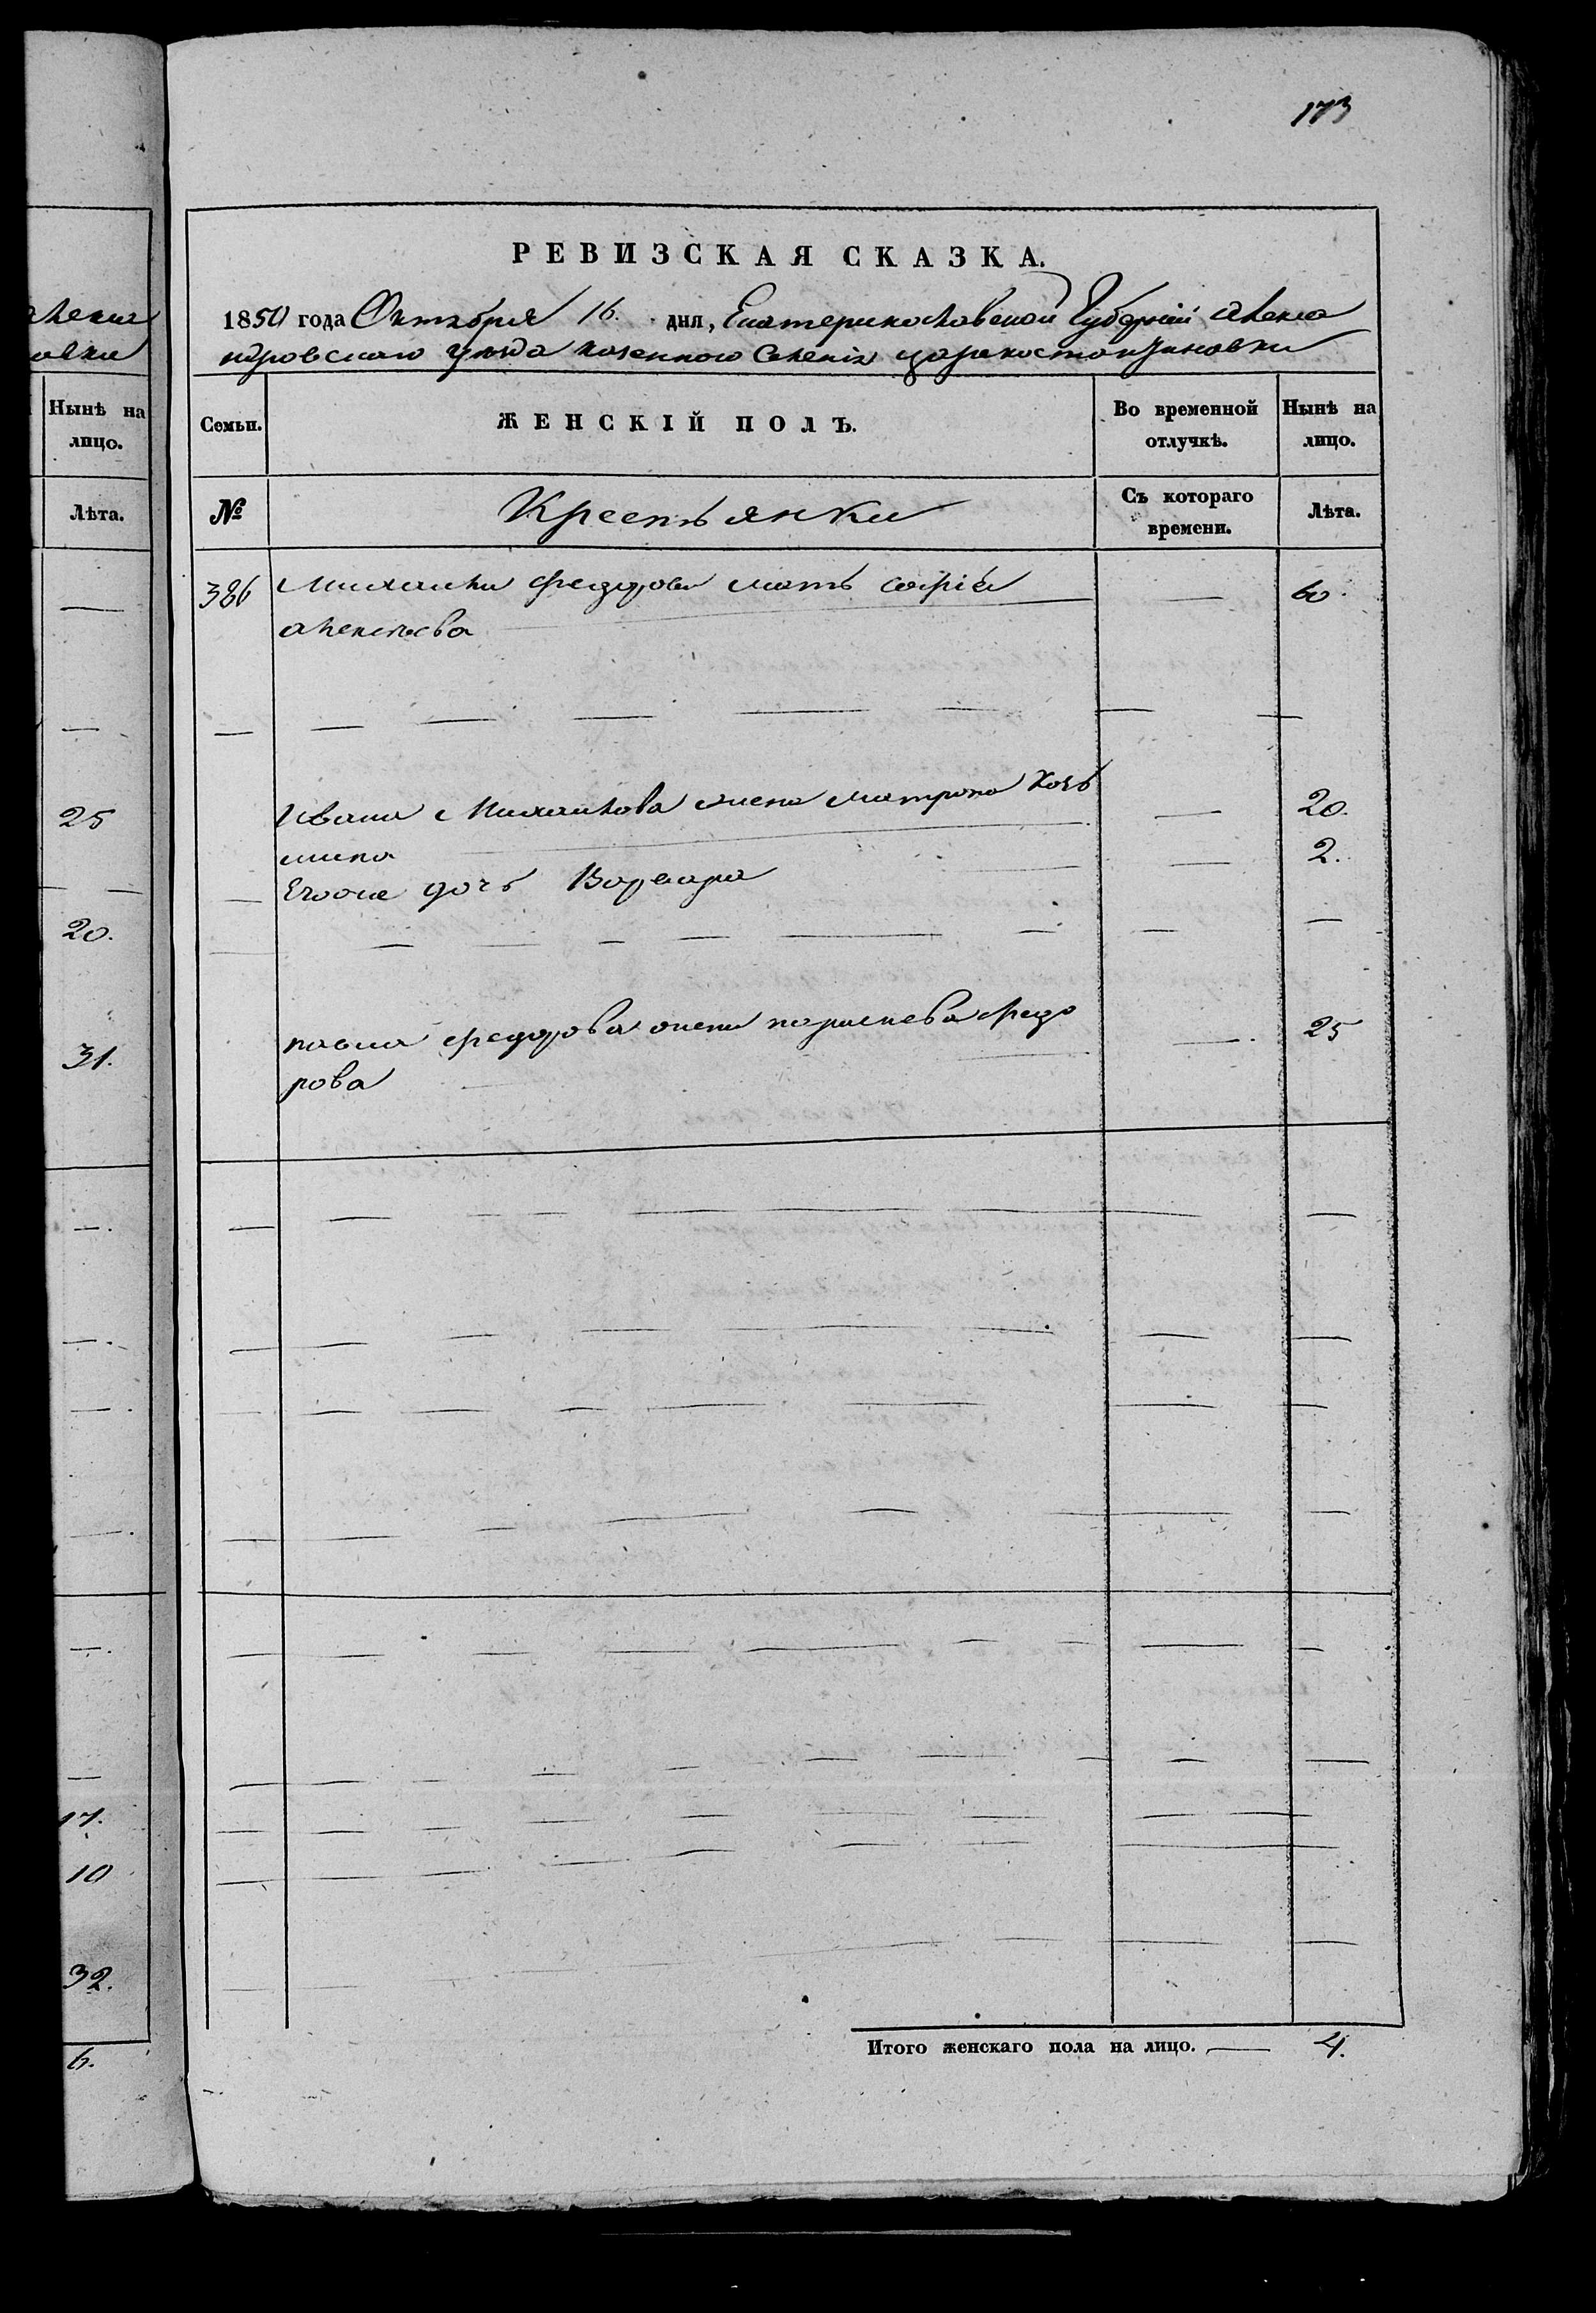 173
РЕВИЗСКАЯ СКАЗКА.
1850 года Октября 16. дня, Екатеринославской Губерніи Алекса
ндровскаго уезда казенного Селенія Цареконстантиновки
алекса
овки
Нынѣ на
лицо.
Лѣта.
25
20.
31.
17.
10
32.
6.
Семьи.
ЖЕНСКІЙ ПОЛЪ.
Во временной
отлучкѣ.
Нынѣ на
лицо.
№
Крестьянки
Съ котораго
времени.
Лѣта.
386 Михайлы Федорова мать Софія 60.
алексеева
Ивана Михайлова жена Матрона 20.
мина
Егоже дочь Варвара 2.
павла федорова жена федо 25
рова
Итого женскаго пола на лицо. 4.